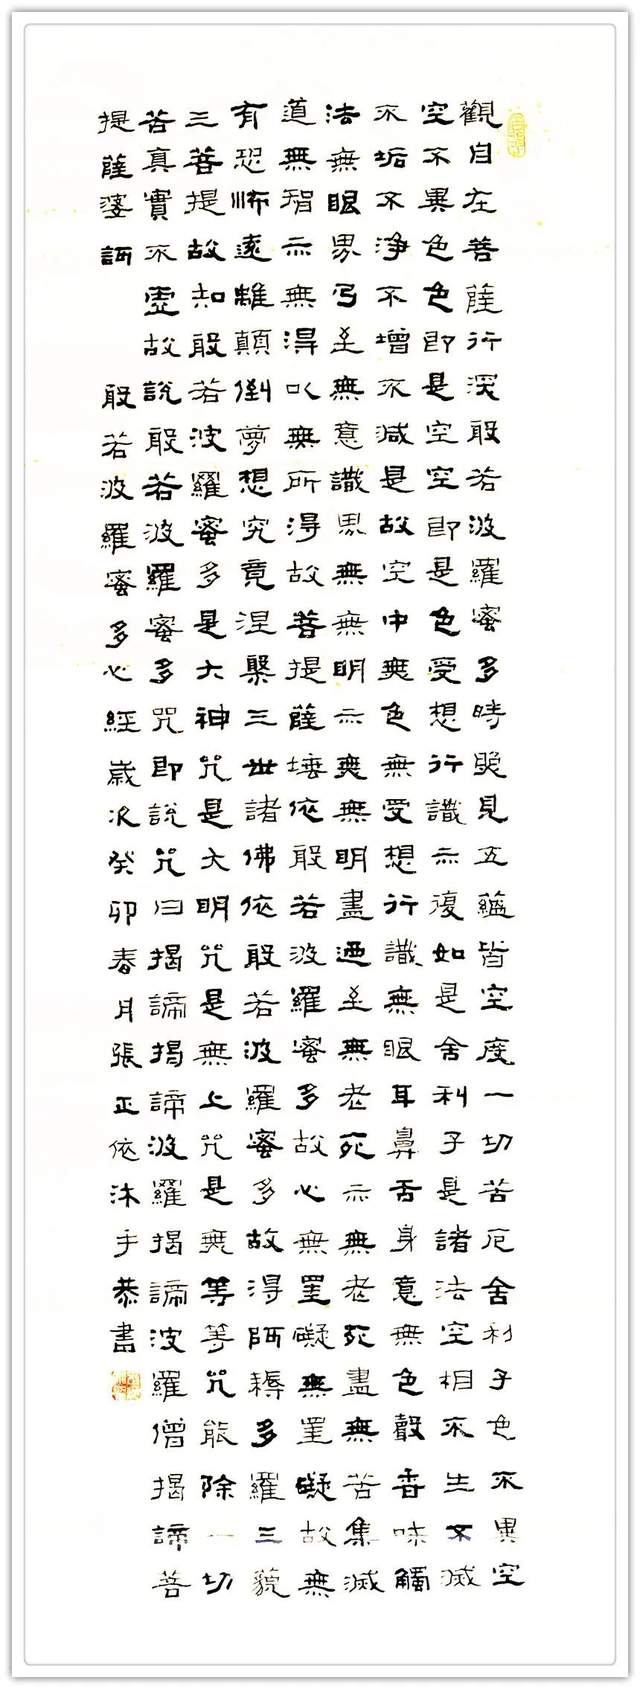 觀自在菩薩行深般若波羅蜜多時照見五蘊皆空度一切苦厄舍利子色不異空
空不異色色即是空空即是色受想行識亦復如是舍利子是諸法空相不生不滅
不垢不淨不增不減是故空中無色無受想行識無眼耳鼻舌身意無色聲香味觸
法無眼界乃至無意識界無無明亦無無明盡迺至無老死亦無老死盡無苦集滅
道無智亦無得以無所得故菩提薩埵依般若波羅蜜多故心無罣礙無罣礙故無
有恐怖遠離顛倒夢想究竟涅槃三世諸佛依般若波羅蜜多故得阿耨多羅三藐
三菩提故知般若波羅蜜多是大神咒是大明咒是無上咒是無等等咒能除一切
苦真實不虛故說般若波羅蜜多咒即說咒曰揭諦揭諦波羅揭諦波羅僧揭諦菩
提薩婆訶 般若波羅蜜多心經歲次癸卯春月張正依沐手恭書